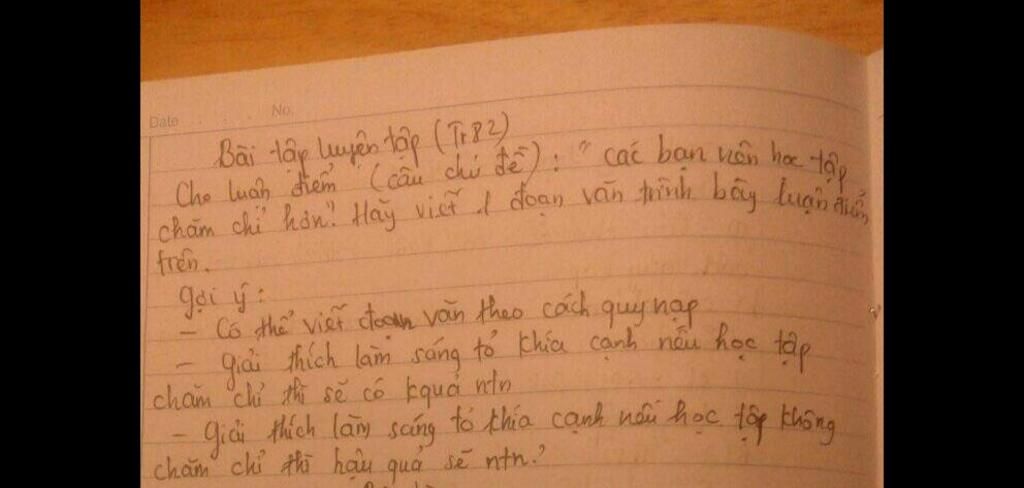 Date No.
Bài tập luyện tập (Tr82)
Cho luận điểm (câu chủ đề): "Các bạn nên học tập
chăm chỉ hơn". Hãy viết 1 đoạn văn trình bày luận điểm
trên.
gợi ý:
- Có thể viết đoạn văn theo cách quy nạp
- giải thích làm sáng tỏ khía cạnh nếu học tập
chăm chỉ thì sẽ có kquả ntn
- Giải thích làm sáng tỏ khía cạnh nếu học tập không
chăm chỉ thì hậu quả sẽ ntn?